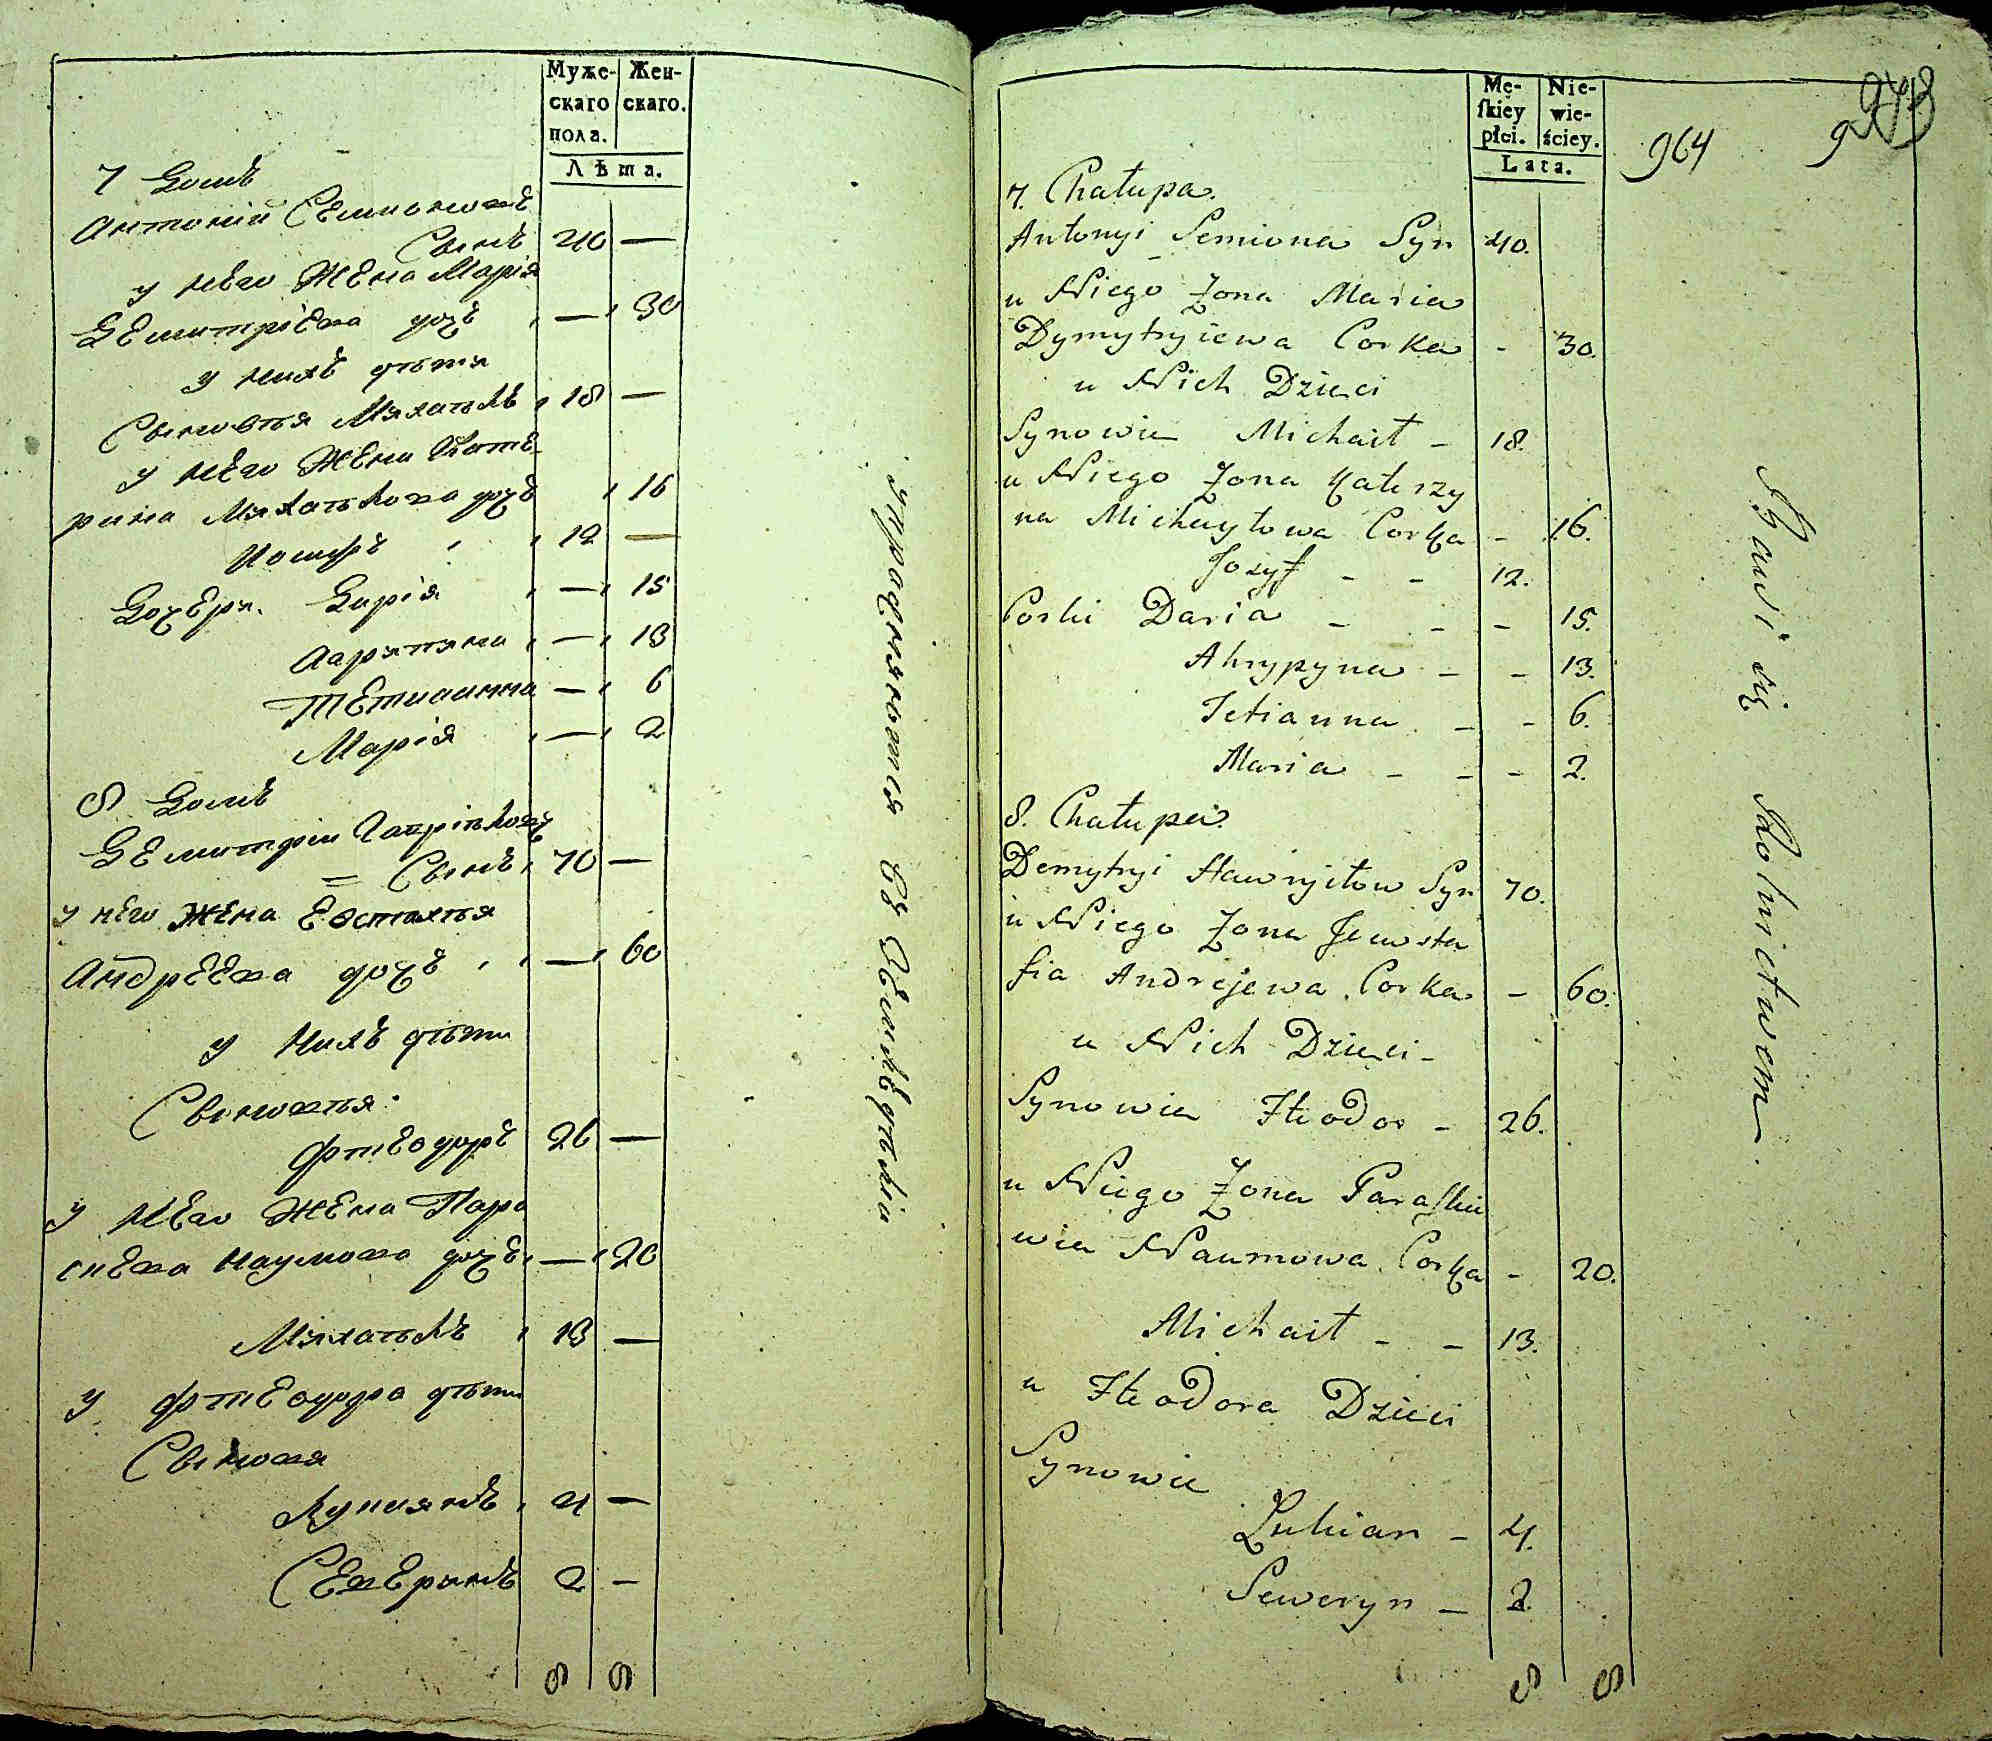 Муже- Жен-
скаго скаго.
пола.
Лѣта.
7 Домъ
Антоній Семионовъ
Сынъ 40 —
у него Жена Марія
Демитріева дочь — 30
у нихъ дѣти
Сыновья Михайлъ 18 —
у него Жена Кате-
рина Михайлова дочь 16
Иосифъ 12 —
Дочери Дарія — 15
Агрипина — 13
Тетианна — 6
Марія — 2
8 Домъ
Демитрій Гаврилов
Сынъ 70 —
у него Жена Евстафія
Андреева дочь — 60
у нихъ дѣти
Сыновья
Фтеодоръ 26 —
у него Жена Пара
скева Наумова дочь — 20
Михайлъ 13 —
у Фтеодора дѣти
Сыновя
Лукианъ 4 —
Северинъ 2 —
8 8
упражняются въ Земледѣліи
Mę- Nie-
skiey wie-
płci. ściey.
Lata.
964
7. Chałupa.
Antonyi Semiona Syn 40.
u Niego Zona Maria
Dymytryiewa Corka - 30.
u Nich Dzieci
Synowie Michaił - 18.
u Niego Zona Katerzy
na Michayłowa Corka - 16.
Jozyf - - 12.
Corki Daria - - - 15.
Ahrypyna - - 13.
Tetianna - - 6.
Maria - - - 2.
8. Chałupa.
Demytryi Hawryłow Syn 70.
u Niego Zona Jewsta
fia Andrejewa Corka - 60.
u Nich Dzieci -
Synowie Fteodor - 26.
u Niego Zona Paraski
wia Naumowa Corka - 20.
Michaił - - 13.
u Fteodora Dzieci
Synowie
Lukian - 4.
Seweryn - 2.
8 8
Bawi się Rolnictwem